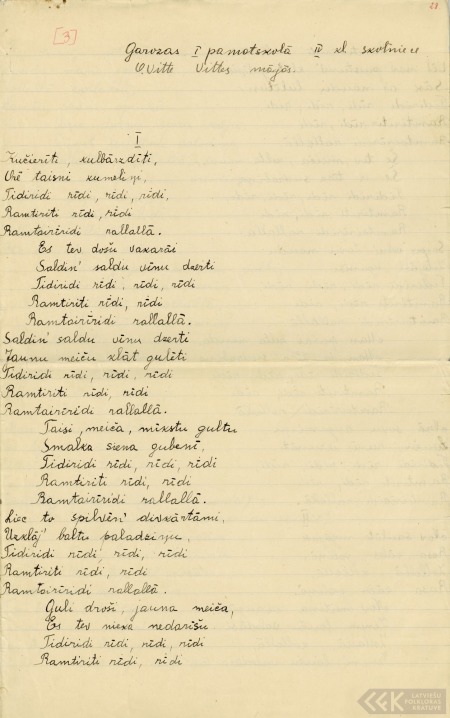 28
[3]
Garozas I pamatskolā IV kl. skolniece
O. Vitte Vittes mājās.
I
Kučierīti, kulbārzdīti,
Vē taisni kumeliņi,
Tidiridi rīdi, rīdi, rīdi,
Ramtiriti rīdi, rīdi
Ramtairīridi rallallā.
Es tev došu vakarāi
Saldin' saldu vīnu dzerti
Tidiridi rīdi, rīdi, rīdi
Ramtiriti rīdi, rīdi
Ramtairīridi rallallā.
Saldin' saldu vīnu dzerti
Jaunu meiču klāt gulēti
Tidiridi rīdi, rīdi, rīdi
Ramtiriti rīdi, rīdi
Ramtairīridi rallallā.
Taisi, meiča, mīkstu gultu
Smalka siena gubenī,
Tidiridi rīdi, rīdi, rīdi
Ramtiriti rīdi, rīdi
Ramtairīridi rallallā.
Liec to spilven' divkārtāmi,
Uzklāj' baltu paladziņu,
Tidiridi rīdi, rīdi, rīdi
Ramtiriti rīdi, rīdi
Ramtairīridi rallallā.
Guli droši, jauna meiča,
Es tev nieka nedarīšu
Tidiridi rīdi, rīdi, rīdi
Ramtiriti rīdi, rīdi
LATVIEŠU
FOLKLORAS
KRĀTUVE